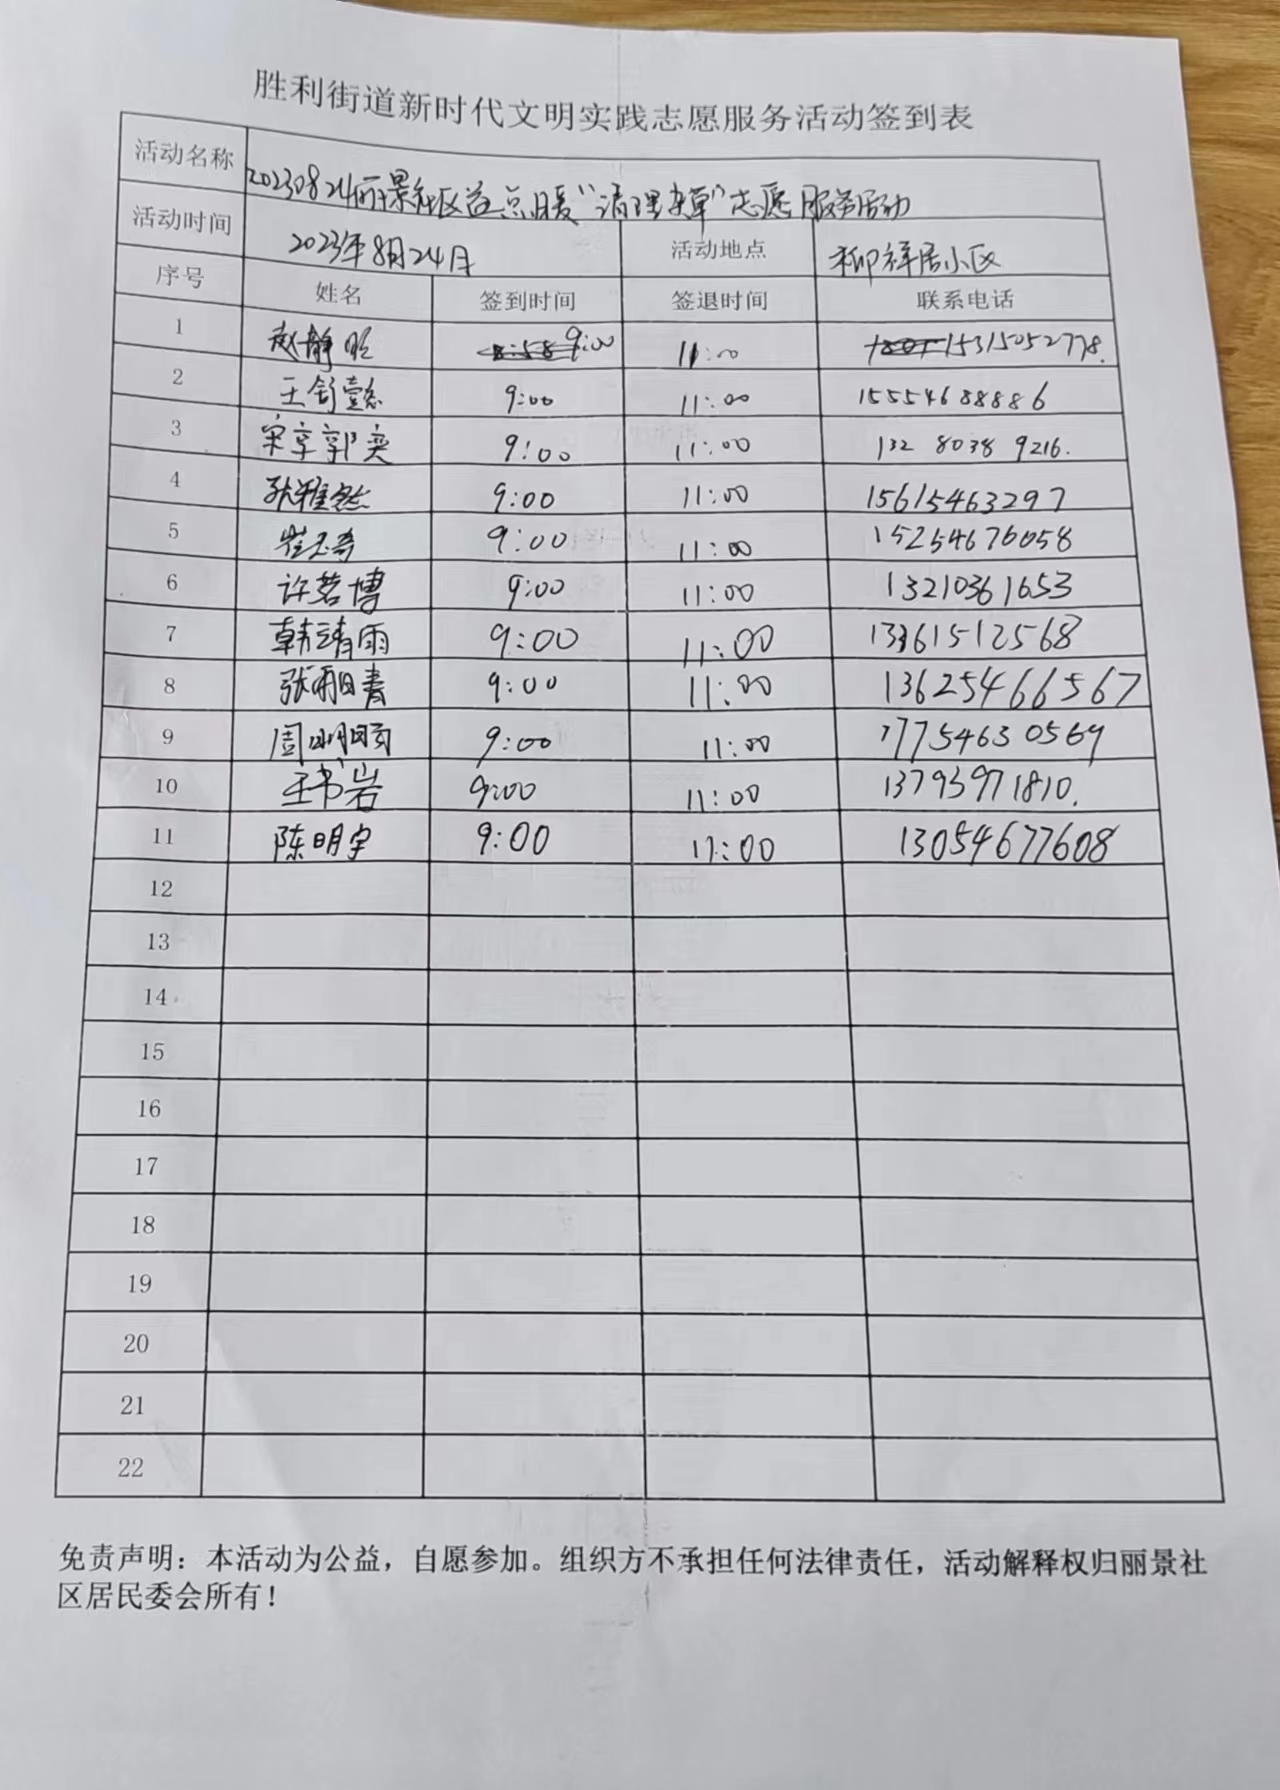 胜利街道新时代文明实践志愿服务活动签到表
活动名称 20230824丽景社区益点暖“清理杂草”志愿服务活动
活动时间 2023年8月24日 活动地点 柳祥居小区
序号 姓名 签到时间 签退时间 联系电话
1 赵静 9:00 11:00 15315052778.
2 王舒懿 9:00 11:00 15554688886
3 宋享郭奕 9:00 11:00 132 8038 9216.
4 张雅然 9:00 11:00 15615463297
5 崔玉奇 9:00 11:00 15254676058
6 许茗博 9:00 11:00 13210361653
7 韩靖雨 9:00 11:00 13361512568
8 张雨青 9:00 11:00 13625466567
9 周 9:00 11:00 17754630569
10 王书岩 9:00 11:00 13793971810.
11 陈明宇 9:00 11:00 13054677608
12
13
14
15
16
17
18
19
20
21
22
免责声明：本活动为公益，自愿参加。组织方不承担任何法律责任，活动解释权归丽景社
区居民委会所有！